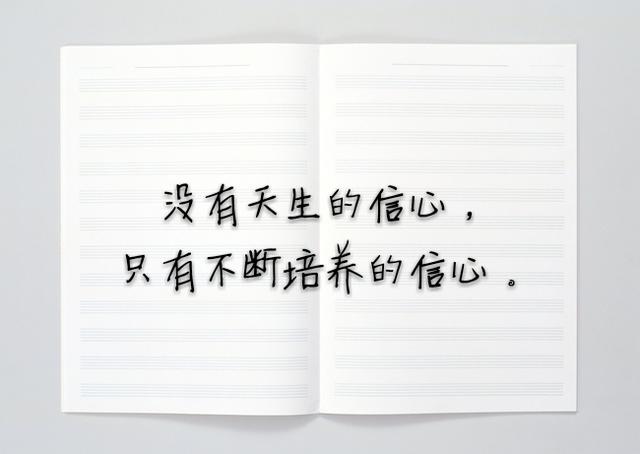 没有天生的信心，
只有不断培养的信心。